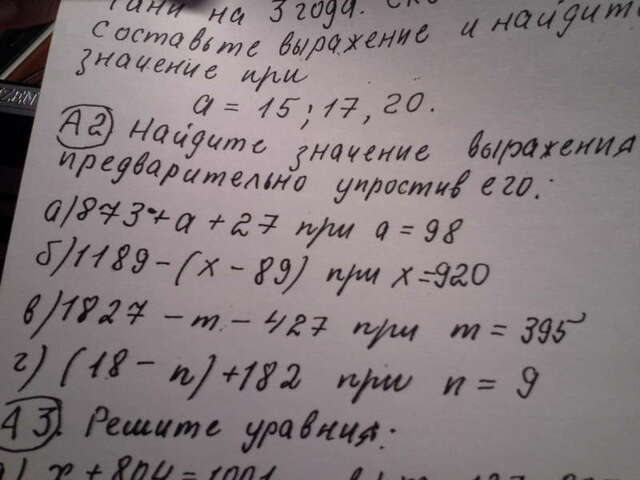 Тани на 3 года.
Составьте выражение и найдите
значение при
a = 15; 17, 20.
А2 Найдите значение выражения
предварительно упростив его:
а) 873 + a + 27 при a = 98
б) 1189 - (x - 89) при x = 920
в) 1827 - m - 427 при m = 395
г) (18 - n) + 182 при n = 9
А3. Решите уравния:
x + 804 = 1001